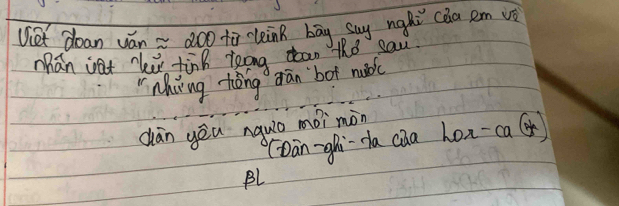 Viết đoan văn ≈ 200 từ trình bày suy nghĩ của em về
nhân vật trữ tình trong đoạn thơ sau.
"những tiếng đàn bọt nước
........................
chán yên ngựa mỏi mòn
(Đàn-ghi-ta của Lor-ca)
BL